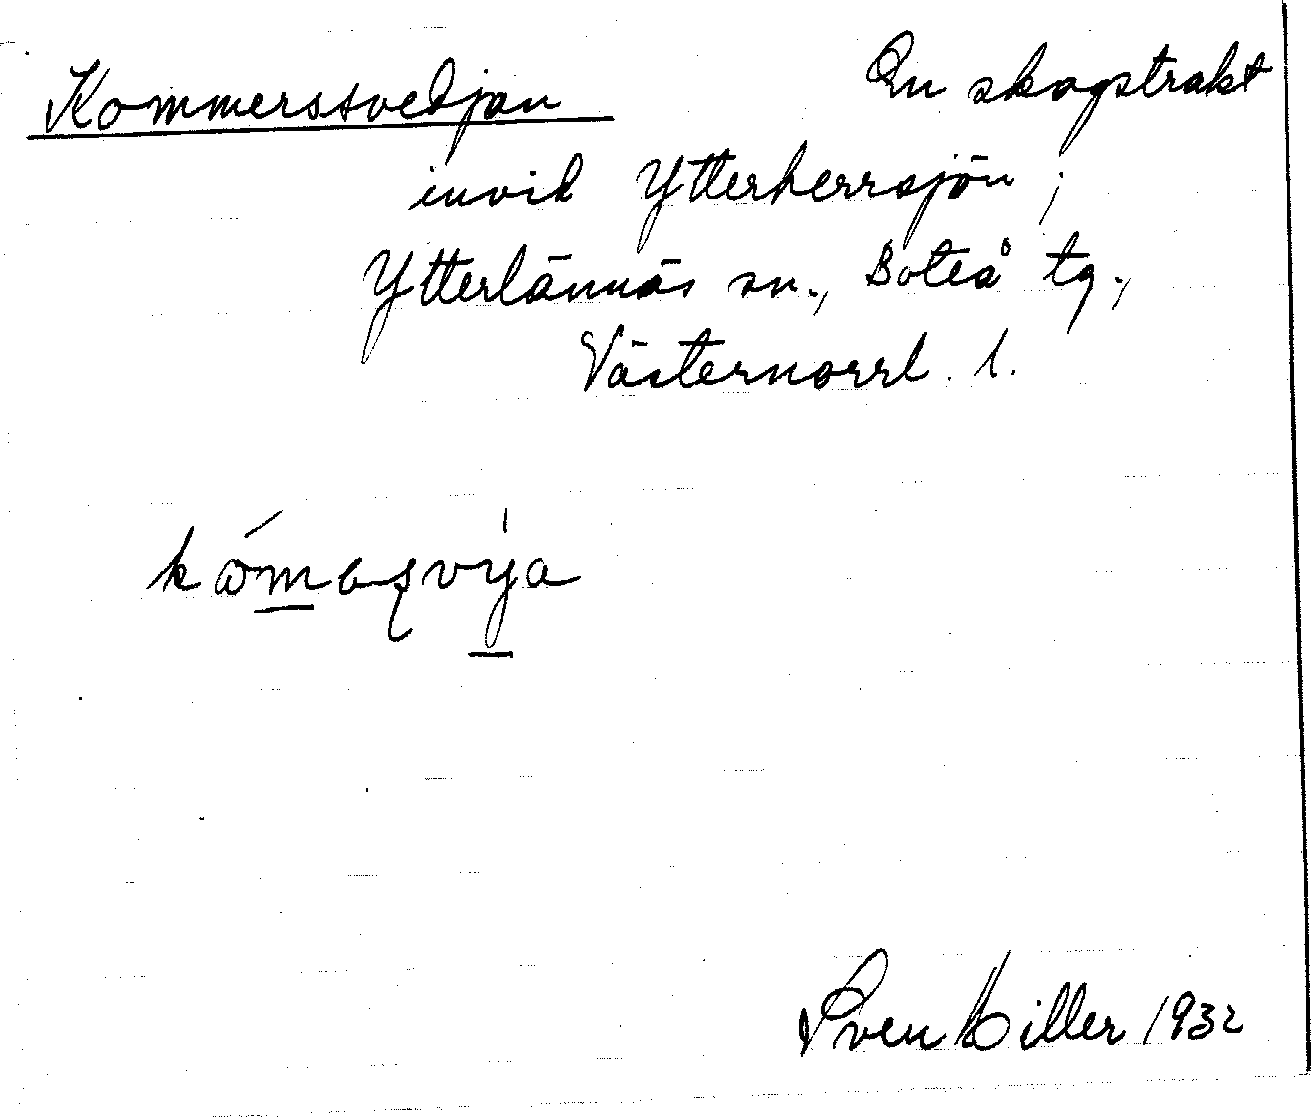 Kommerssvedjan En skogstrakt
invid Ytterherrsjön;
Ytterlännäs sn., Boteå tg.,
Västernorrl. l.
Sven Hiller 1932